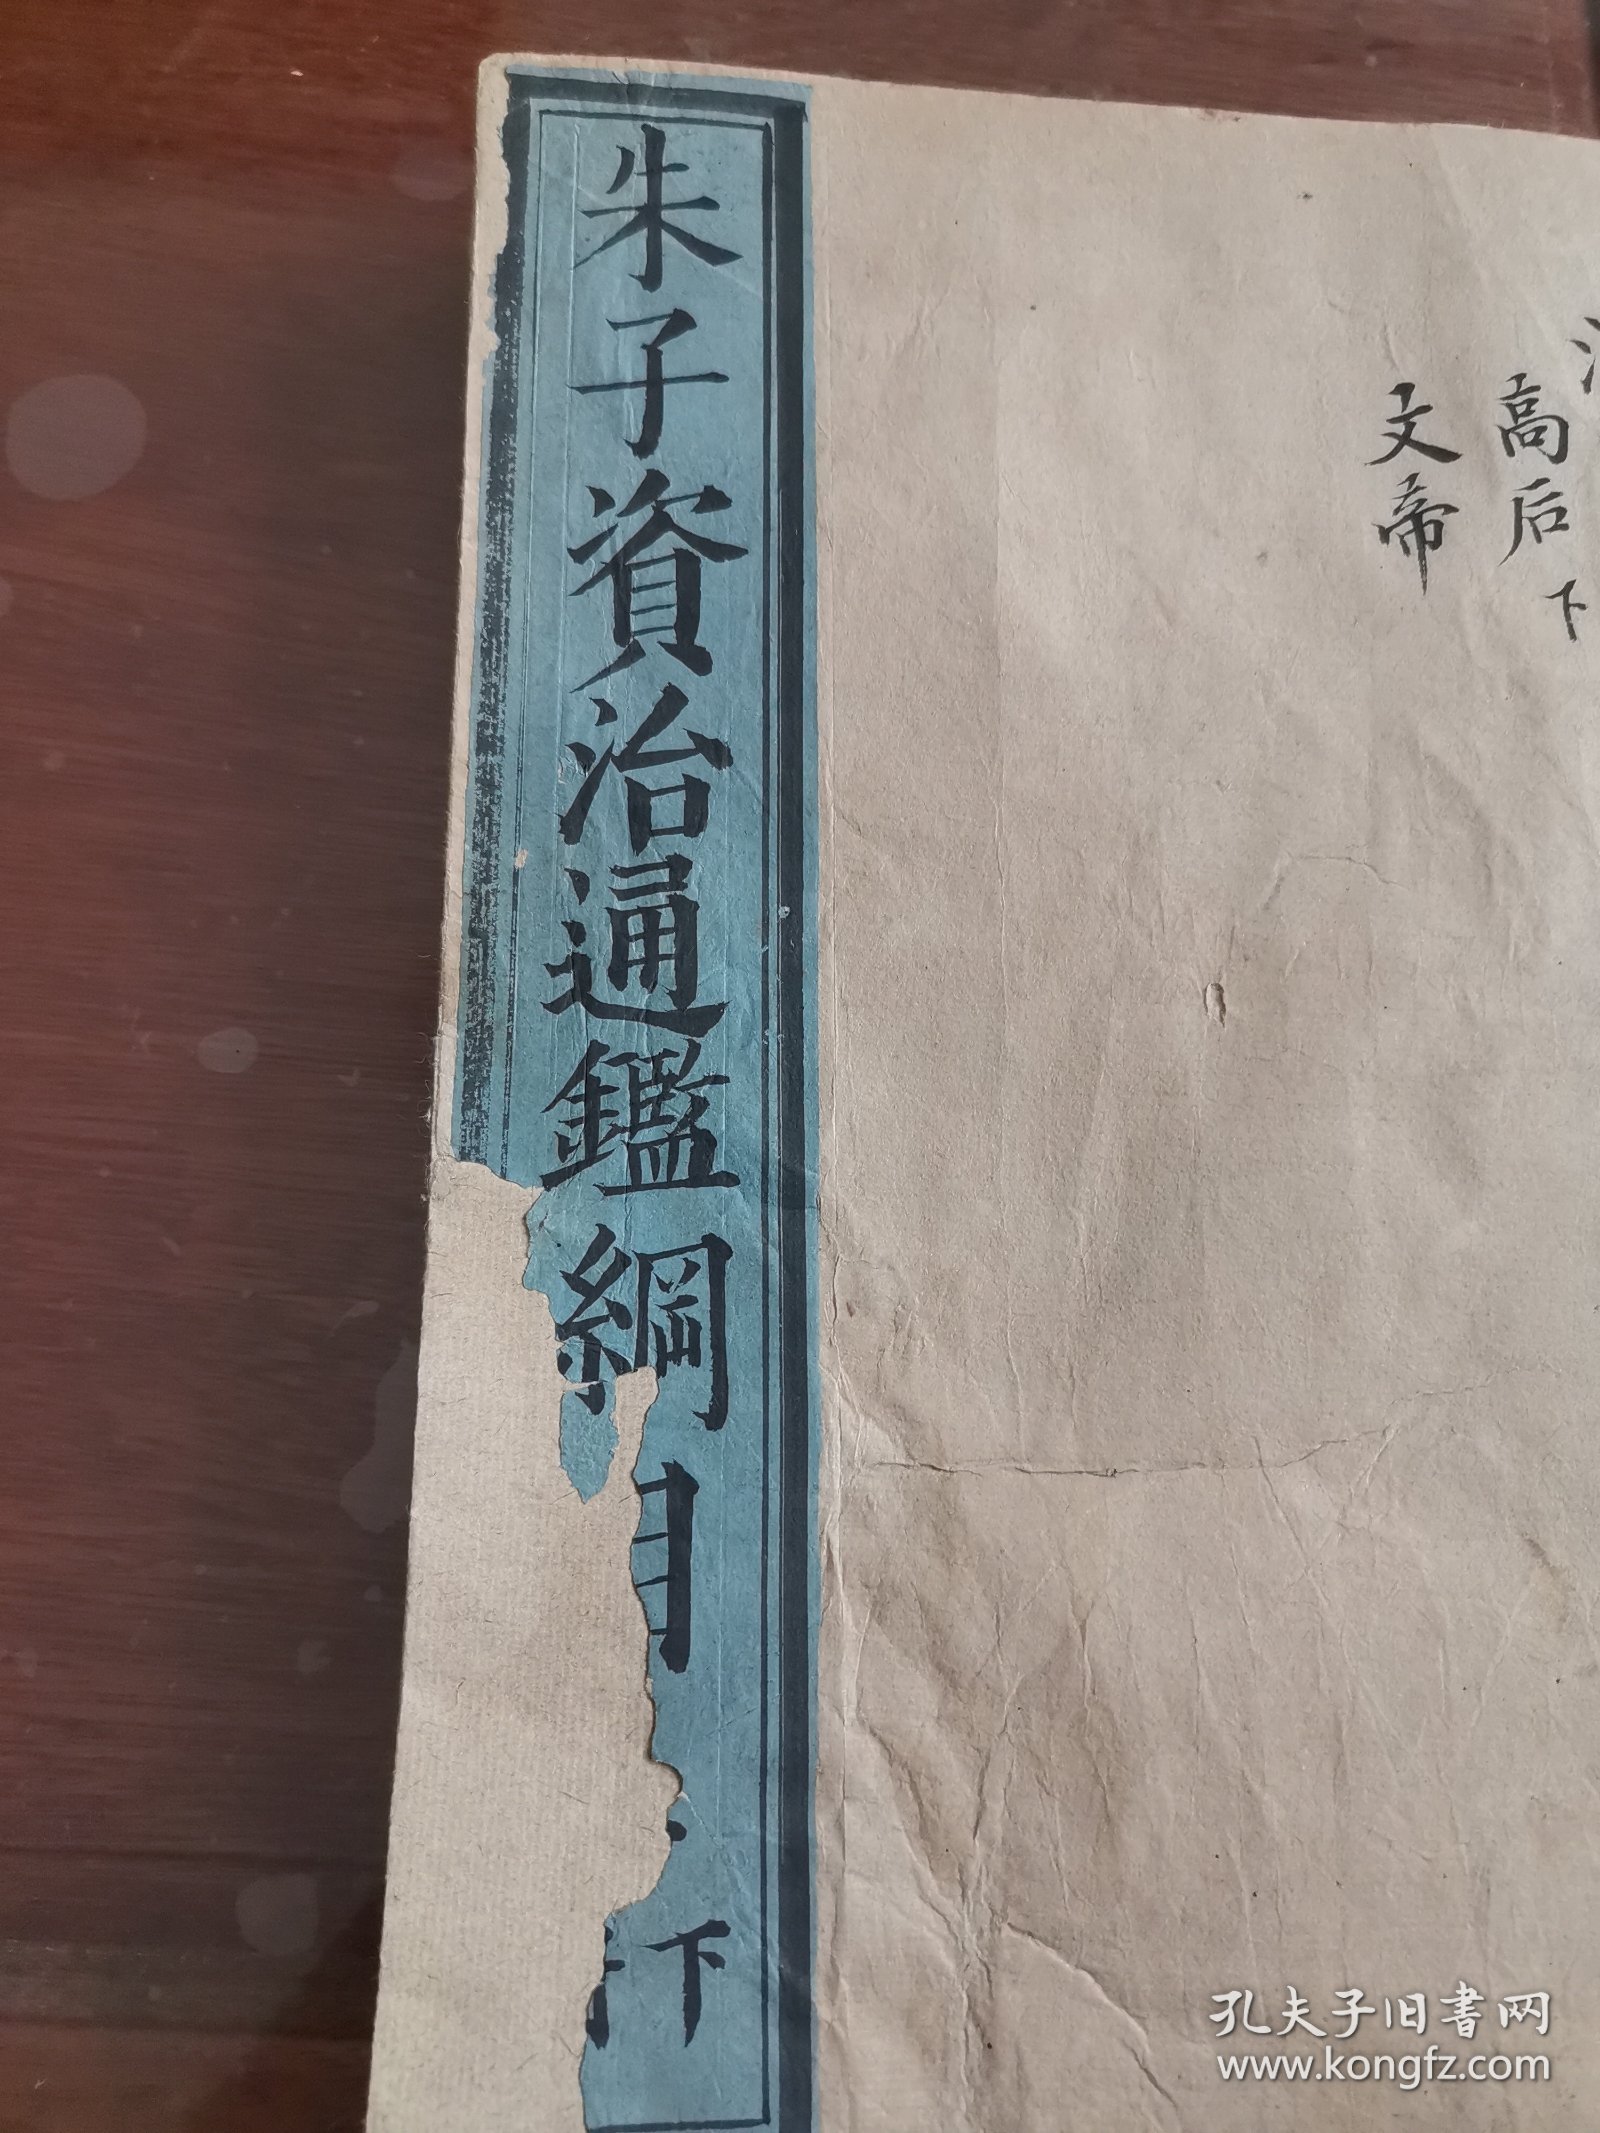 高后下
文帝
朱子資治通鑑綱目
下
孔夫子旧書网
www.kongfz.com